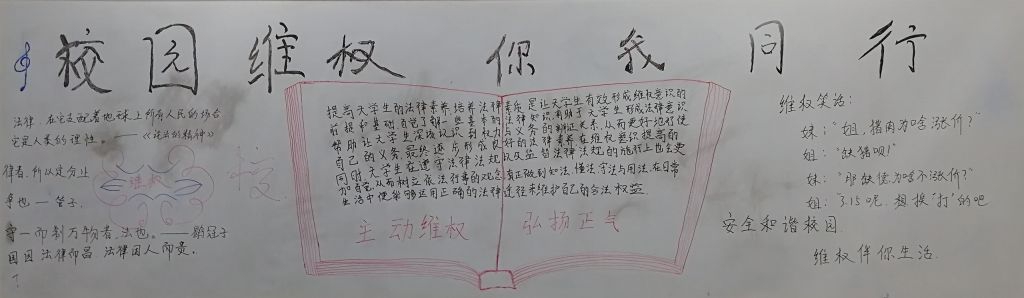 校园维权 你我同行
法律,在它支配着地球上所有人民的场合
它是人类的理性。——《论法的精神》
律者,所以定分止
争也 — 管子.
守一而制万物者,法也。——鹖冠子
国因法律而昌,法律因人而贵.
维权
提高大学生的法律素养,培养法律素质是让大学生有效形成维权意识的
前提和基础.自觉了解一些基本的法律知识,有助于大学生形成法律意识
帮助让大学生深该认识到权力与义务的辩证关系,从而更好地行使
自己的义务,最终逐步形成良好的法律素养,在维权意识提高的
同时,大学生在遵守法律法规以及监督法律法规的施行上也会更
加自觉,从而树立依法行事的观念,真正做到知法、懂法、守法与用法,在日常
生活中便能够运用正确的法律途径来维护自己的合法权益
主动维权 弘扬正气
维权笑话:
妹:"姐,猪肉为啥涨价?"
姐:"缺猪呗!"
妹:"那缺德为啥不涨价?"
姐:3.15呢,想挨"打"的吧
安全和谐校园
维权伴你生活.